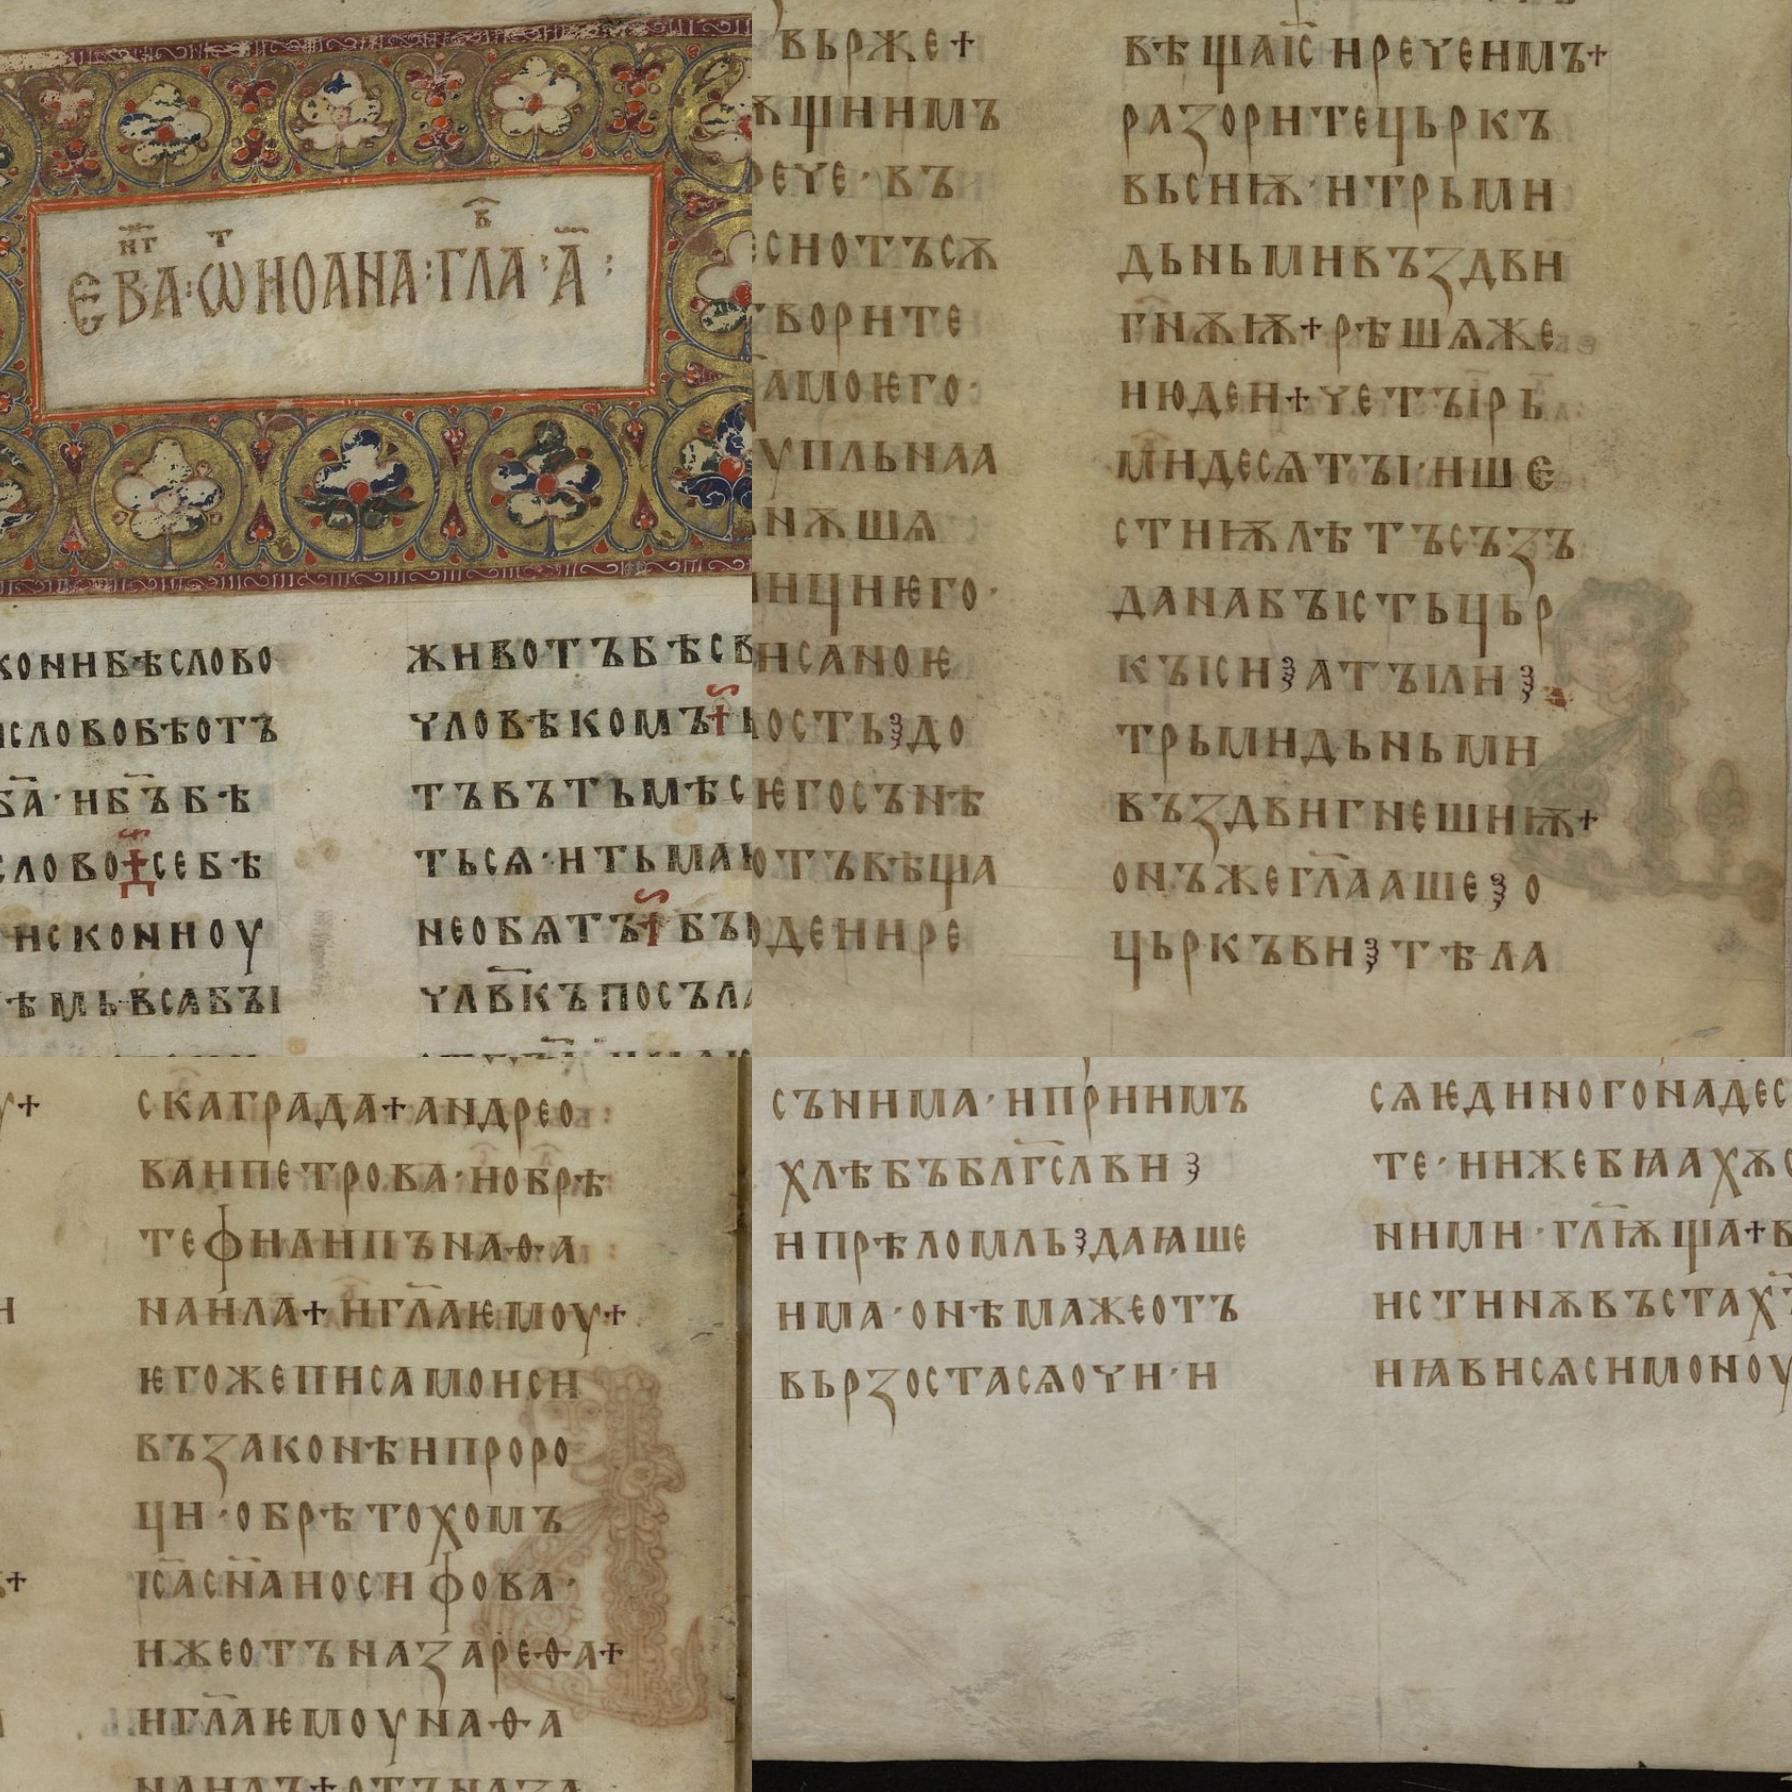 ЕВА҃НГ: ѾИОАНА: ГЛА҃В: А҃:
конибѣслово
ислововобѣотъ
ба҃·иб҃ъбѣ
слово+себѣ
исконноу
ѣмьвсѧбꙑ
животъбѣсв
чловѣкомъ+
тъвътьмѣс
тьсѧ·итьма
необѧтъ+бъ
чл҃вкъпосъла
вьрже+
вшиимъ
рече·въ
еснотъсѫ
творите
амоѥго·
упльнаа
нѫшѧ
ициѥго·
исаноѥ
остьꙁдо
ѥгосънѣ
отъвѣща
юдеиире
вѣщаІ҃Сиреченмъ+
разоритецьркъ
вьсиѭ·итрьми
дьньмивъздви
гнѫѭ+рѣшѧже
июдеи+четꙑрь
мидесѧтꙑ·ише
стиѭлѣтъсъзъ
данабꙑстьцьр
кꙑсиꙁатꙑлиꙁ
трьмидьньми
въздвигнешиѭ+
онъжегл҃аашеꙁо
цьркъвиꙁтѣла
скаграда+андрео
ваипетрова·иобрѣ
тефилипъnаѳа
наила+игл҃аѥмоу+
ѥгожеписамоиси
възаконѣипроро
ци·обрѣтохомъ
І҃Сасн҃аиосифова·
ижеотъназареѳа+
игл҃аѥмоунаѳа
наилъ+отъназа
съниима·иприимъ
хлѣбъблг҃слвиꙁ
ипрѣломльꙁдаꙗше
има·онѣмажеотъ
вьрзостасѧочи·и
сѧѥдиногонадес
те·иижебꙗахѫс
ними·гл҃ѭща+в
истинѫвъстах҃
иꙗвисѧсимоноу